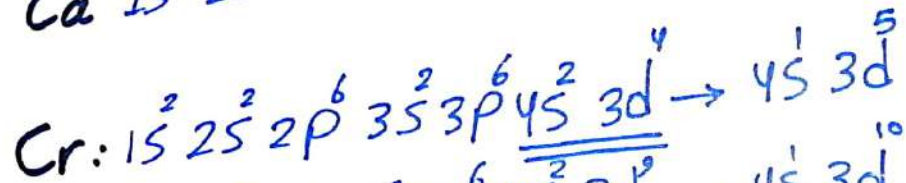 Ca 1s
Cr: 1s² 2s² 2p⁶ 3s² 3p⁶ 4s² 3d⁴ → 4s¹ 3d⁵
6 2 4s¹ 3d¹⁰